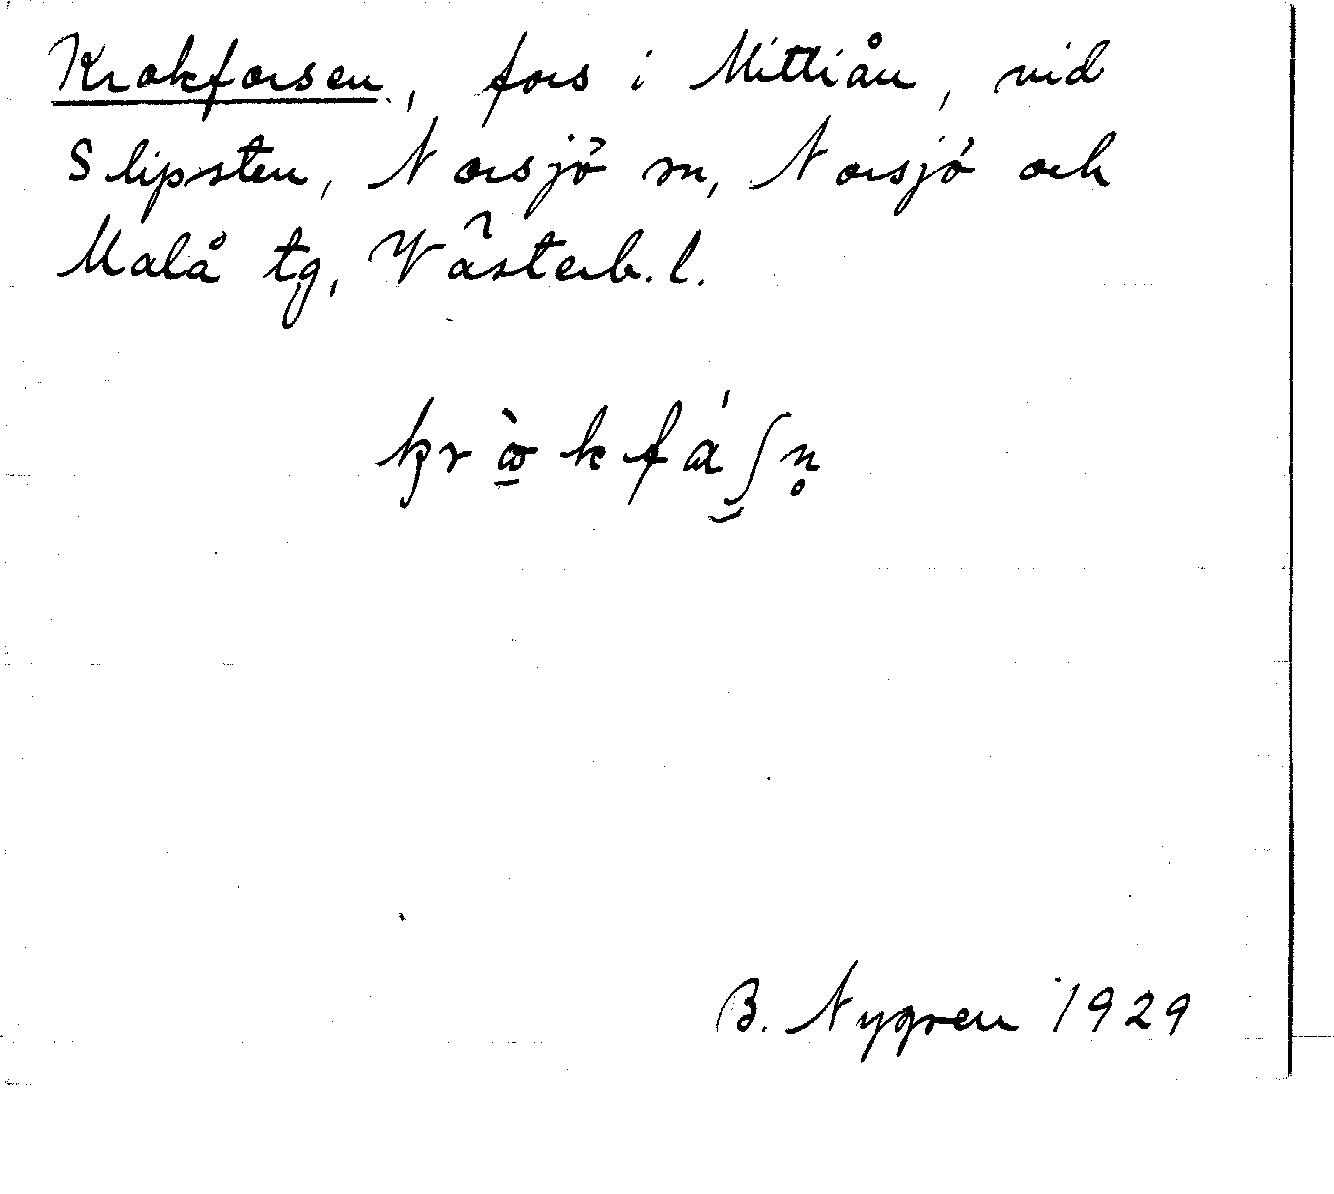 Krokforsen, fors i Mittiån, vid
Slipsten, Norsjö sn, Norsjö och
Malå tg, Västerb. l.
B. Nygren 1929